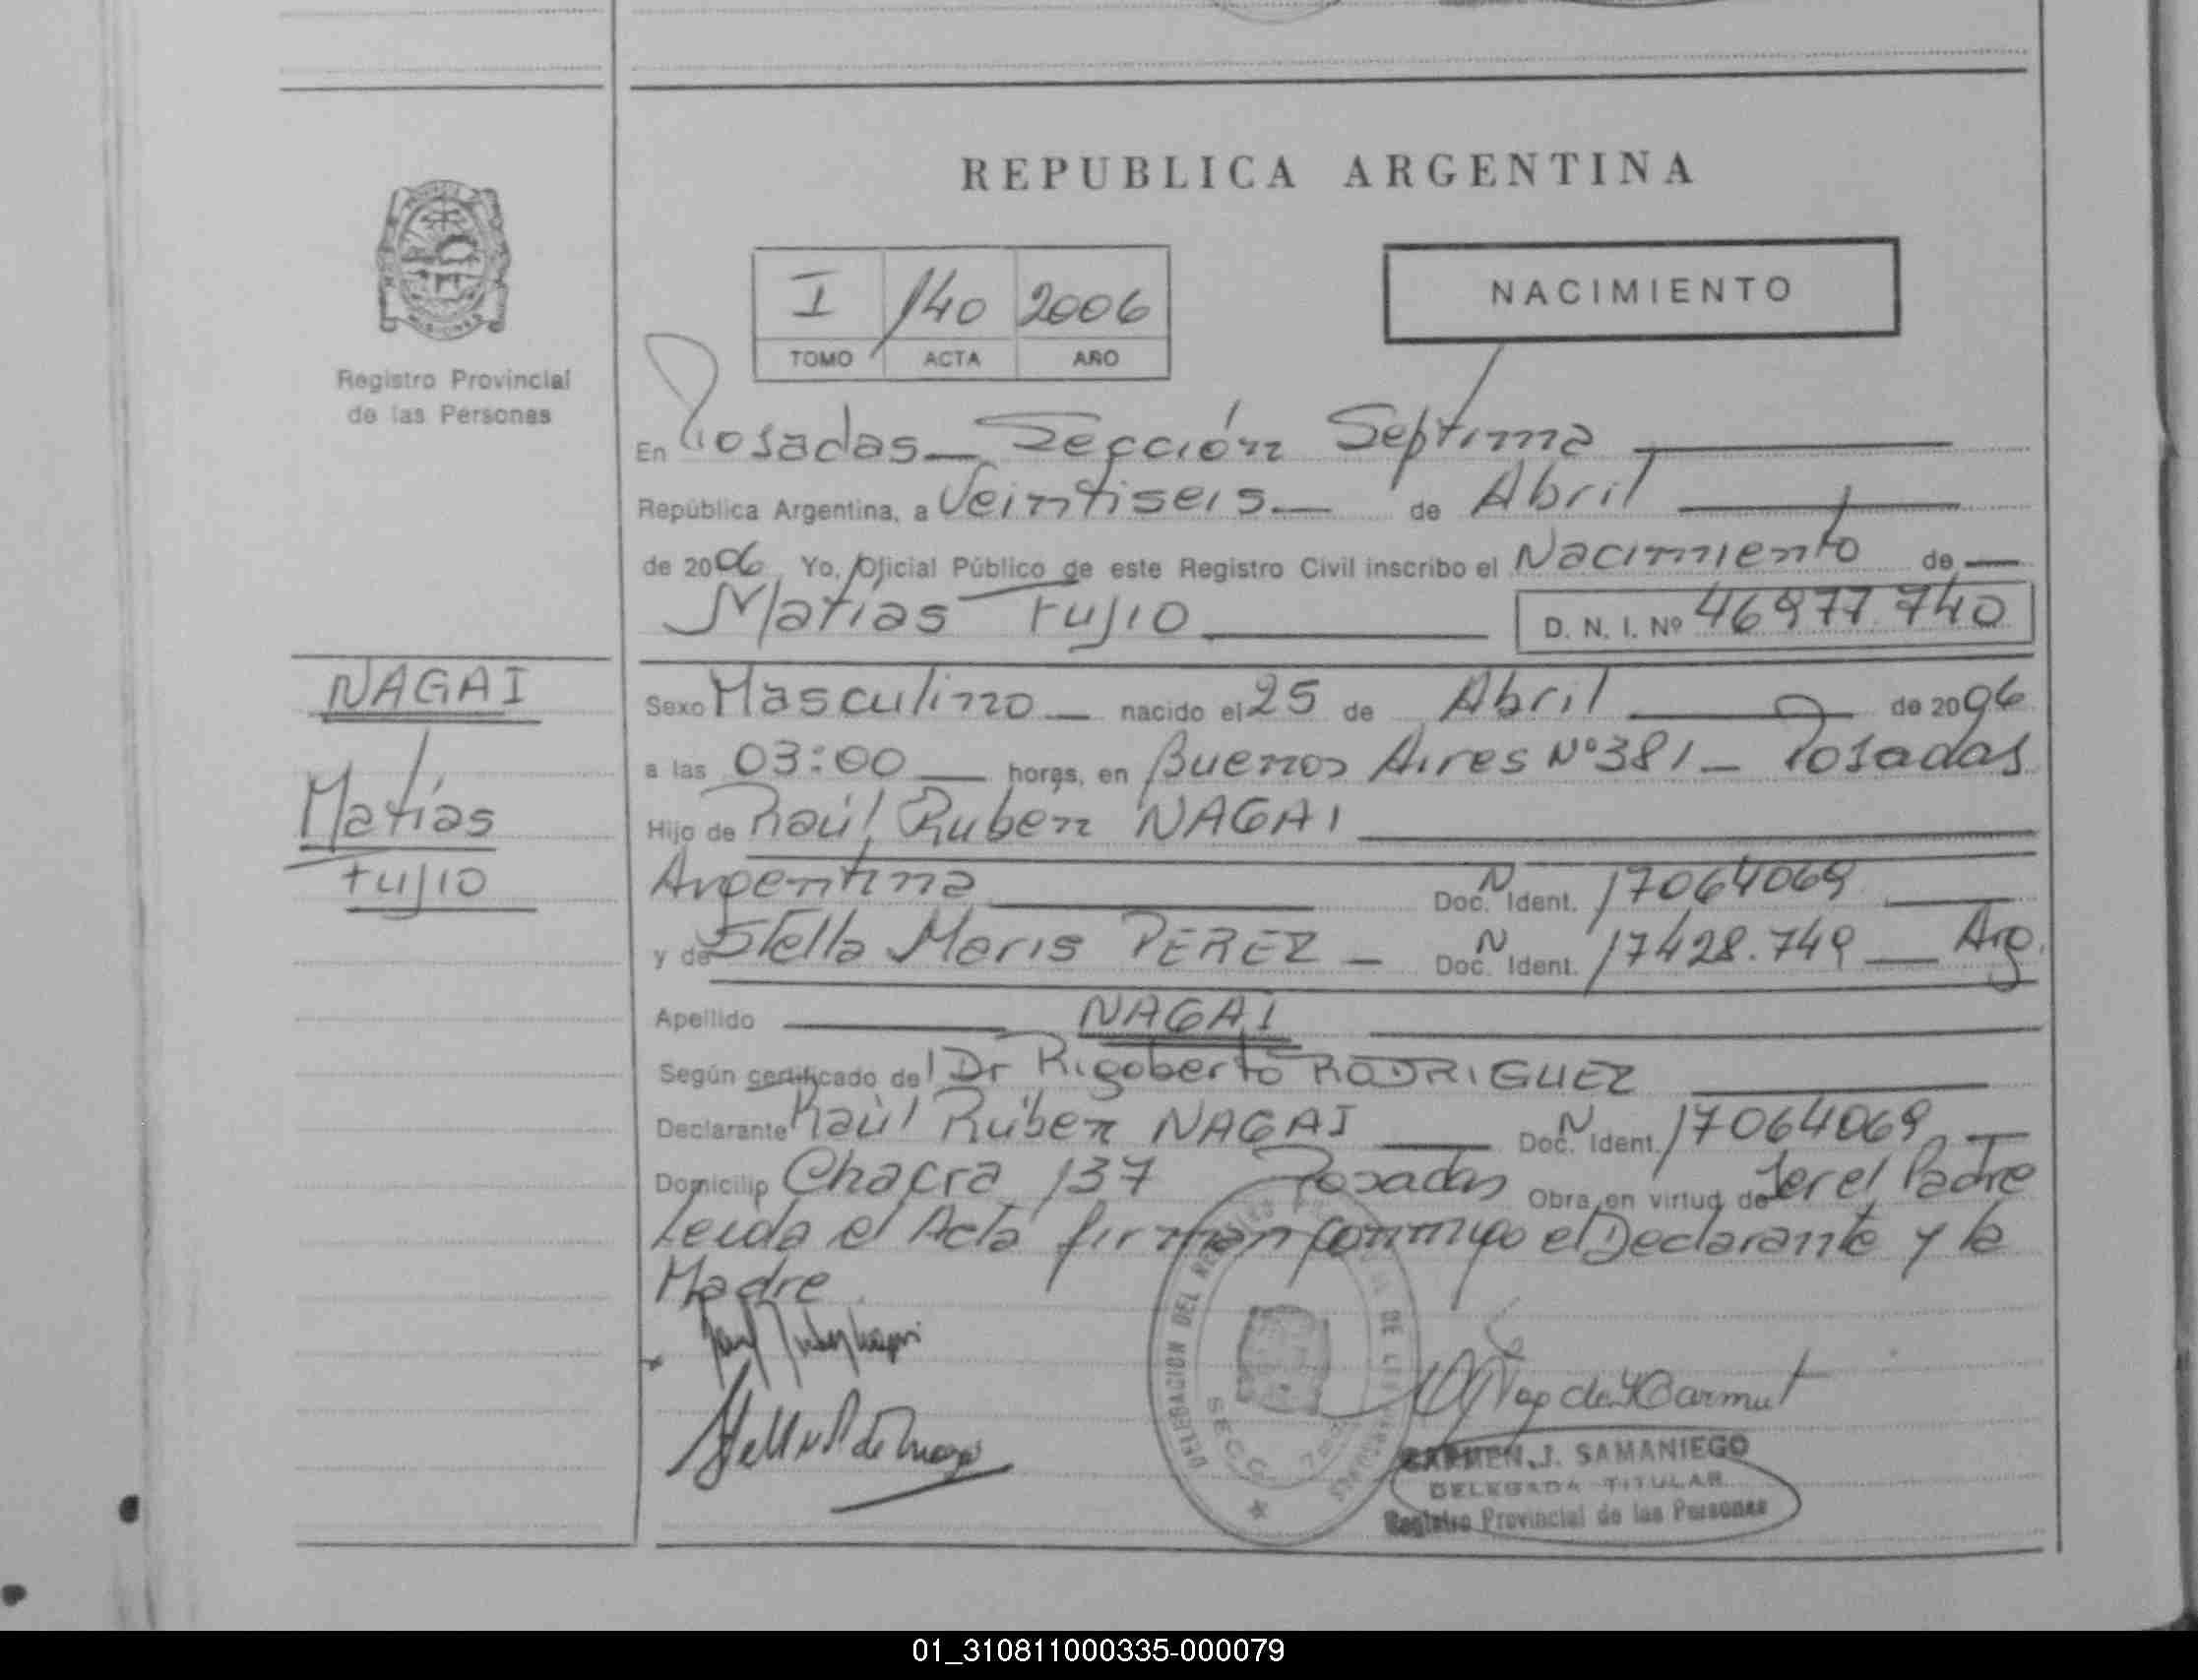 REPUBLICA ARGENTINA
I 140 2006
TOMO ACTA AÑO
NACIMIENTO
Registro Provincial
de las Personas
En Posadas — Sección Septima
República Argentina, a Veintiseis — de Abril
de 2006 Yo, Oficial Público de este Registro Civil inscribo el Nacimiento de
Matías Fujio D. N. I. Nº 46977.740
NAGAI
Matías
Fujio
Sexo Masculino — nacido el 25 de Abril de 2006
a las 03:00 — horas, en Buenos Aires Nº 381 — Posadas
Hijo de Raúl Ruben NAGAI
Argentina Doc. N Ident. 17064069
y de Stella Maris PEREZ — Doc. N Ident. 17428.749 — Arg.
Apellido NAGAI
Según certificado del Dr Rigoberto RODRIGUEZ
Declarante Raúl Rúben NAGAI Doc. N Ident. 17064069
Domicilio Chacra 137 Posadas Obra en virtud de Ser el Padre
Leida el Acta firman conmigo el Declarante y la
Madre
DELEGACION DEL
SECC
CARMEN J. SAMANIEGO
DELEGADA TITULAR
Registro Provincial de las Personas
01_310811000335-000079